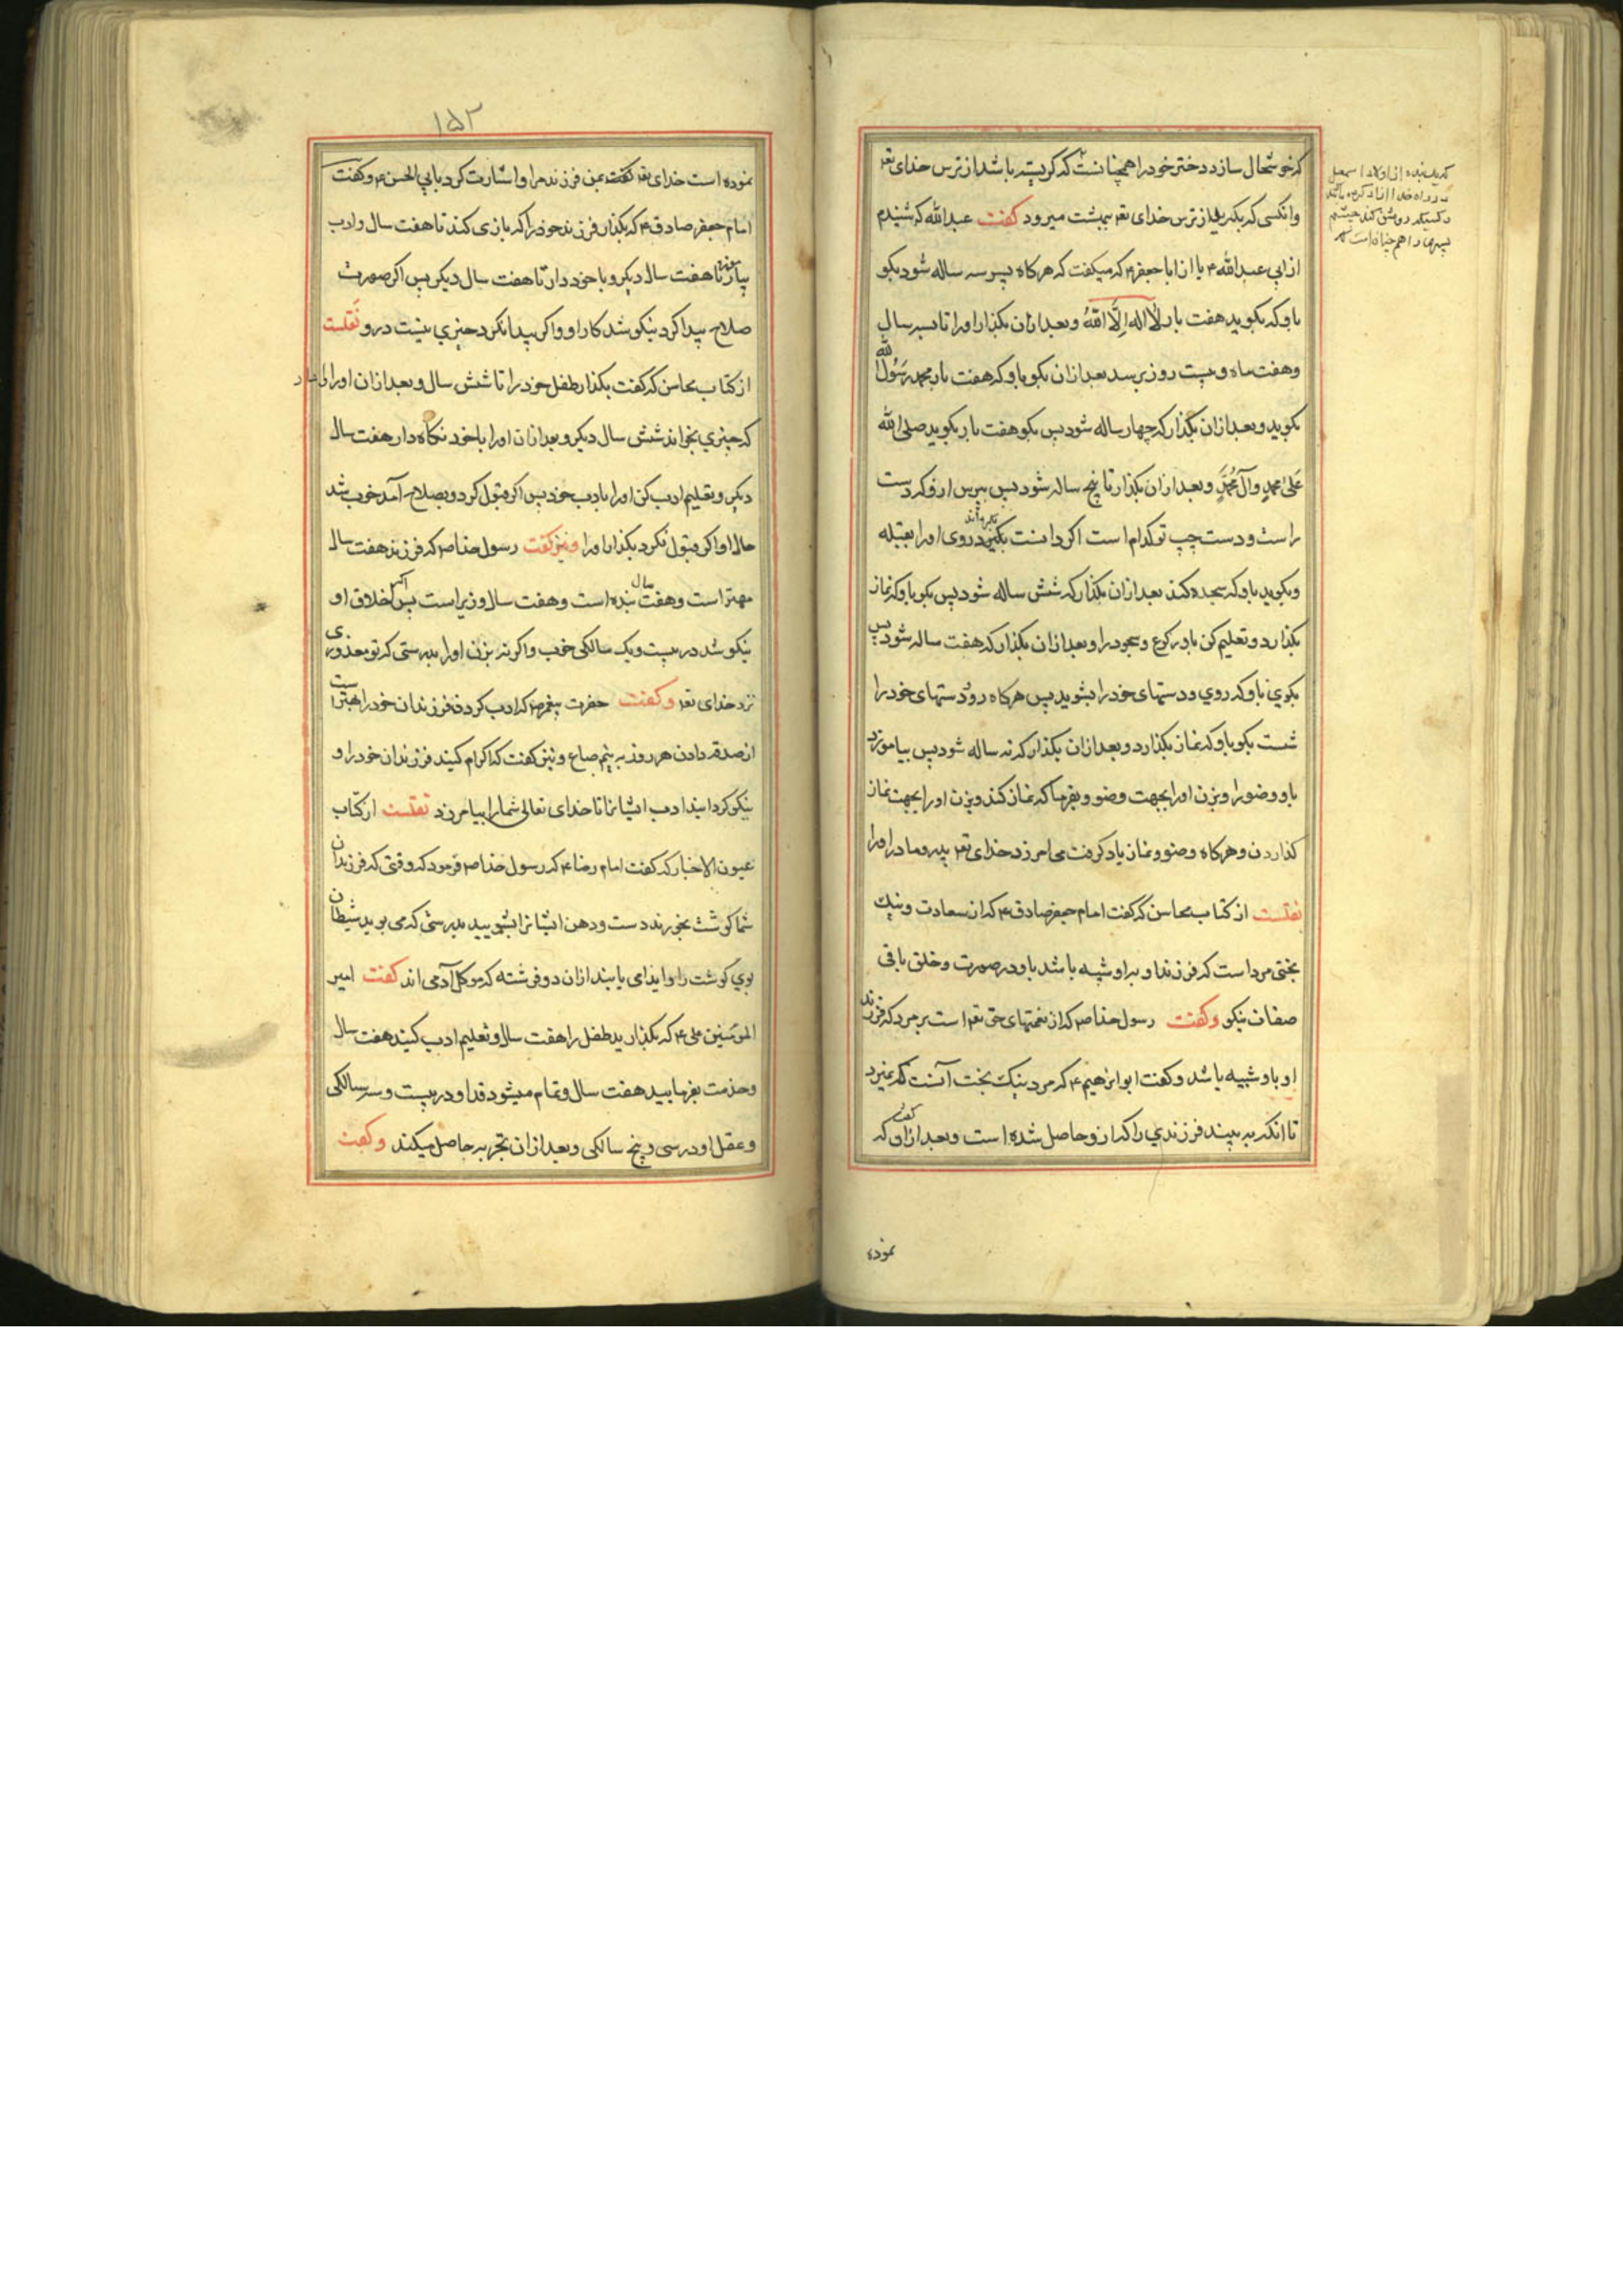 که خوشحال سازد دختر خود را همچنانست که کریسته باشد از ترس خدای تعـ
وانکسی که بکرید از ترس خدای تعـ ببهشت میرود کفت عبدالله که شنیدم
از ابی عبدالله ع یا از ابا جعفر ع که میکفت که هرکاه پسر سه ساله شود بکو
باو که بکوید هفت بار لا اله الا الله وبعد ازان بکذار او را تا بسه سال
وهفت ماه وبیست روز برسد بعد ازان بکو باو که هفت بار محمد رسول الله
بکوید وبعد ازان بکذار که چهار ساله شود پس بکو هفت بار بکوید صلی الله
علی محمد وآل محمد وبعد ازان بکذار تا پنج ساله شود پس بپرس ازو که دست
راست ودست چپ تو کدام است اکر دانست بکردان روی او را بقبله
وبکوید باو که سجده کند بعد ازان بکذار که شش ساله شود پس بکو باو که نماز
بکذارد وتعلیم کن باو رکوع وسجود را وبعد ازان بکذار که هفت ساله شود پس
بکوی باو که روی ودستهای خود را بشوید پس هرکاه رو ودستهای خود را
شست بکو باو که نماز بکذارد وبعد ازان بکذار که نه ساله شود پس بیاموزد
باو وضو را وبزن او را بجهت وضو وبفرما که نماز کند وبزن او را بجهت نماز
کذاردن وهرکاه وضو ونماز یاد کرفت می امرزد خدای تعـ پدر ومادر او را
نقلست از کتاب محاسن که کفت امام جعفر صادق ع که از سعادت ونیک
بختی مرد است که فرزند او براو شبیه باشد باو در صورت وخلق باقی
صفات نیکو وکفت رسول خدا صـ که از نعمتهای حق تعـ است بر مرد که فرزند
او باو شبیه باشد وکفت ابو ابرهیم ع که مرد نیک بخت آنست که نمیرد
تا انکه به بیند فرزندی را که ازو حاصل شده است وبعد ازان کفت او که
نموده
که یک بنده از اولاد اسمعیل
در راه خدا ازاد کرده باشد
وکسیکه روشن کند چشم
پسری را همچنانست که
۱۵۲
نموده است خدای تعـ کفت بمن فرزند مرا واشارت کرد بابی الحسن ع وکفت
امام جعفر صادق ع که بکذار فرزند خود را که بازی کند تا هفت سال وادب
بیاموز تا هفت سال دیکر وبا خود دار تا هفت سال دیکر پس اکر صورت
صلاح پیدا کرد نیکو شد کار او واکر پیدا نکرد چیزی نیست درو نقلست
از کتاب محاسن که کفت بکذار طفل خود را تا شش سال وبعد ازان او را
که چیزی بخواند شش سال دیکر وبعد ازان او را با خود نکاه دار هفت سال
دیکر وتعلیم ادب کن او را بادب خود پس اکر قبول کرد وبصلاح آمد خوب شد
حال او واکر قبول نکرد بکذار او را ونیز کفت رسول خدا صـ که فرزند هفت سال
مهتر است وهفت سال بنده است وهفت سال وزیر است پس اکر اخلاق او
نیکو شد در بیست ویک سالکی خوب واکر نه بزن او را بدرستی که تو معذوری
نزد خدای تعـ وکفت حضرت پیغمبر صـ که ادب کردن فرزندان خود را بهتر است
از صدقه دادن هر روز به نیم صاع ونیز کفت که اکرام کنید فرزندان خود را و
نیکو کردانید ادب ایشانرا تا خدای تعالی شما را بیامرزد نقلست از کتاب
عیون الاخبار که کفت امام رضا ع که رسول خدا صـ فرمود که وقتی که فرزندان
شما کوشت بخورند دست ودهن ایشانرا بشویید بدرستی که می بوید شیطان
بوی کوشت را وایذا می یابند ازان دو فرشته که موکل آدمی اند کفت امیر
المومنین علی ع که بکذارید طفل را هفت سال وتعلیم ادب کنید هفت سال
وخدمت بفرمایید هفت سال وتمام میشود قد او در بیست وسه سالکی
وعقل او در سی وپنج سالکی وبعد ازان تجربه حاصل میکند وکفت